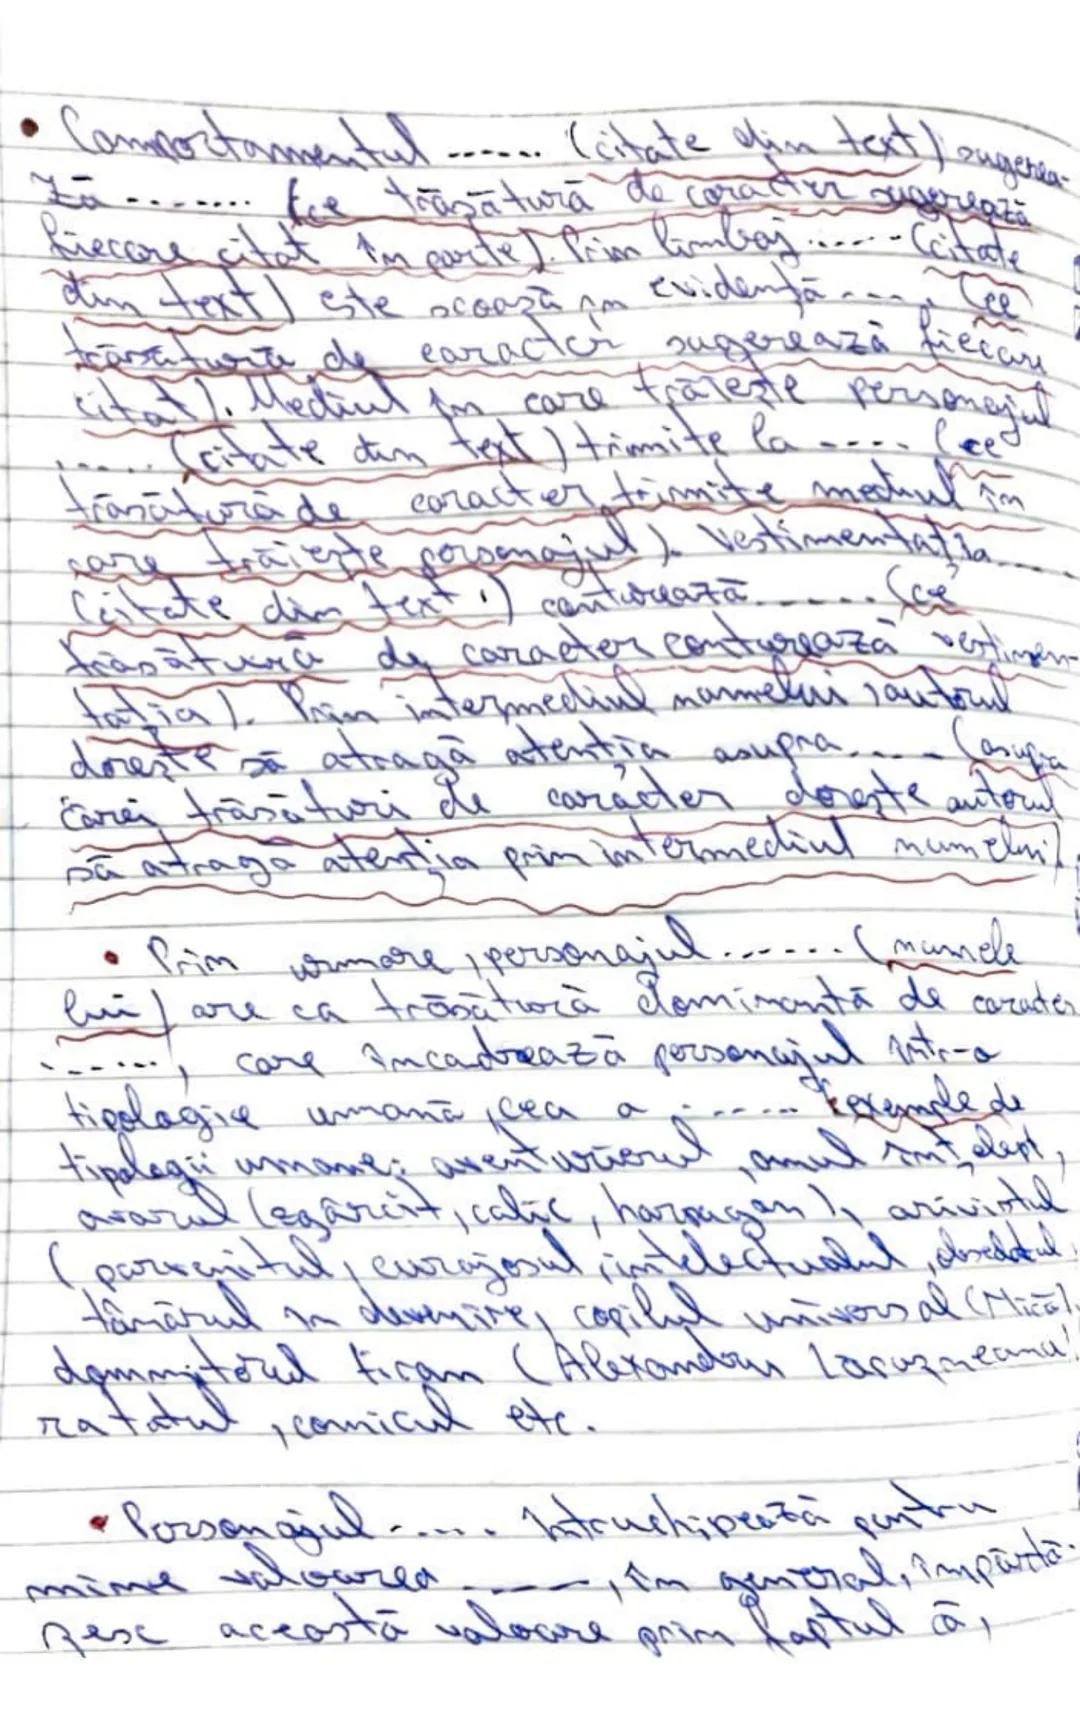 • Comportamentul ...... (citate din text) sugerea-
ză ....... (ce trăsătură de caracter sugerează
fiecare citat în parte). Prin limbaj ...... (citate
din text) este scoasă în evidență ...., (ce
trăsătură de caracter sugerează fiecare
citat). Mediul în care trăiește personajul
...... (citate din text) trimite la ..... (ce
trăsătură de caracter trimite mediul în
care trăiește personajul). Vestimentația ....
(citate din text.) conturează ....... (ce
trăsătură de caracter conturează vestimen-
tația). Prin intermediul numelui, autorul
dorește să atragă atenția asupra ..... (asupra
cărei trăsături de caracter dorește autorul
să atragă atenția prin intermediul numelui)
• Prin urmare, personajul ....... (numele
lui) are ca trăsătură dominantă de caracter
......, care încadrează personajul într-o
tipologie umană, cea a ...... (exemple de
tipologii umane: aventurierul, omul înțelept,
avarul (zgârcit, calic, harpagon), arivistul
(parvenitul, curajosul, intelectualul,
tânărul în devenire, copilul universal (Nică),
domnitorul tiran (Alexandru Lăpușneanul)
ratatul, comicul etc.
• Personajul ..... întruchipează pentru
mine valoarea ....., în general, împărtă-
șesc această valoare prin faptul că,